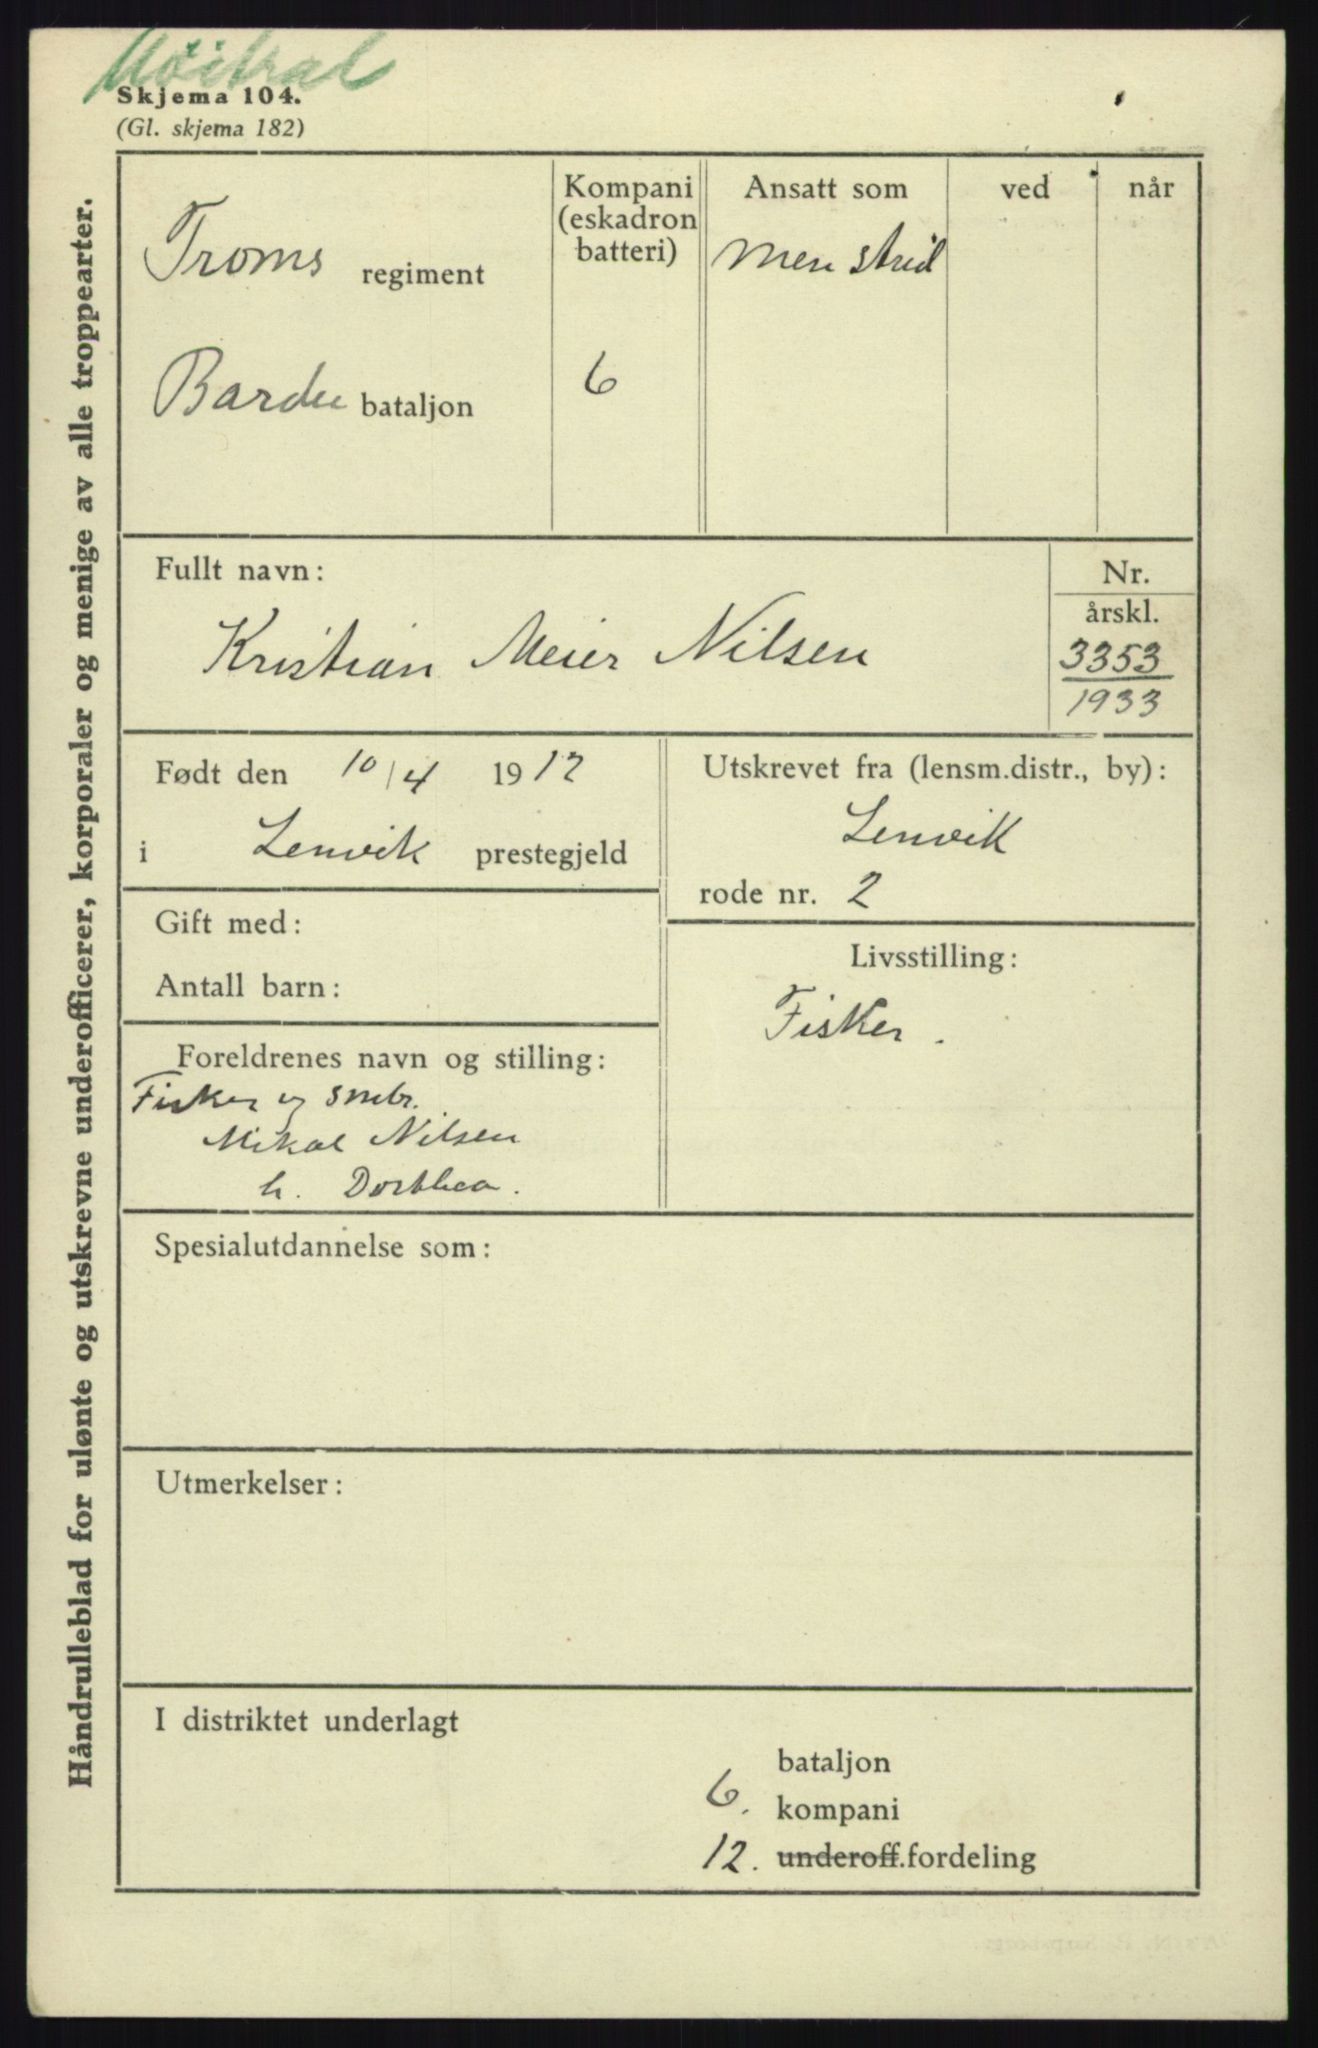 Nøitral
Skjema 104.
(Gl. skjema 182)
Håndrulleblad for ulønte og utskrevne underofficerer, korporaler og menige av alle troppearter.
Troms regiment
Bardu bataljon
Kompani
(eskadron
batteri)
6
Ansatt som
Men strid
ved
når
Fullt navn:
Kristian Meier Nilsen
Nr.
årskl.
3353
1933
Født den 10/4 1912
i Lenvik prestegjeld
Utskrevet fra (lensm.distr., by):
Lenvik
rode nr. 2
Gift med:
Antall barn:
Livsstilling:
Fisker.
Foreldrenes navn og stilling:
Fisker og smbr.
Mikal Nilsen
h. Dorthea.
Spesialutdannelse som:
Utmerkelser:
I distriktet underlagt
bataljon
6. kompani
12. underoff.fordeling